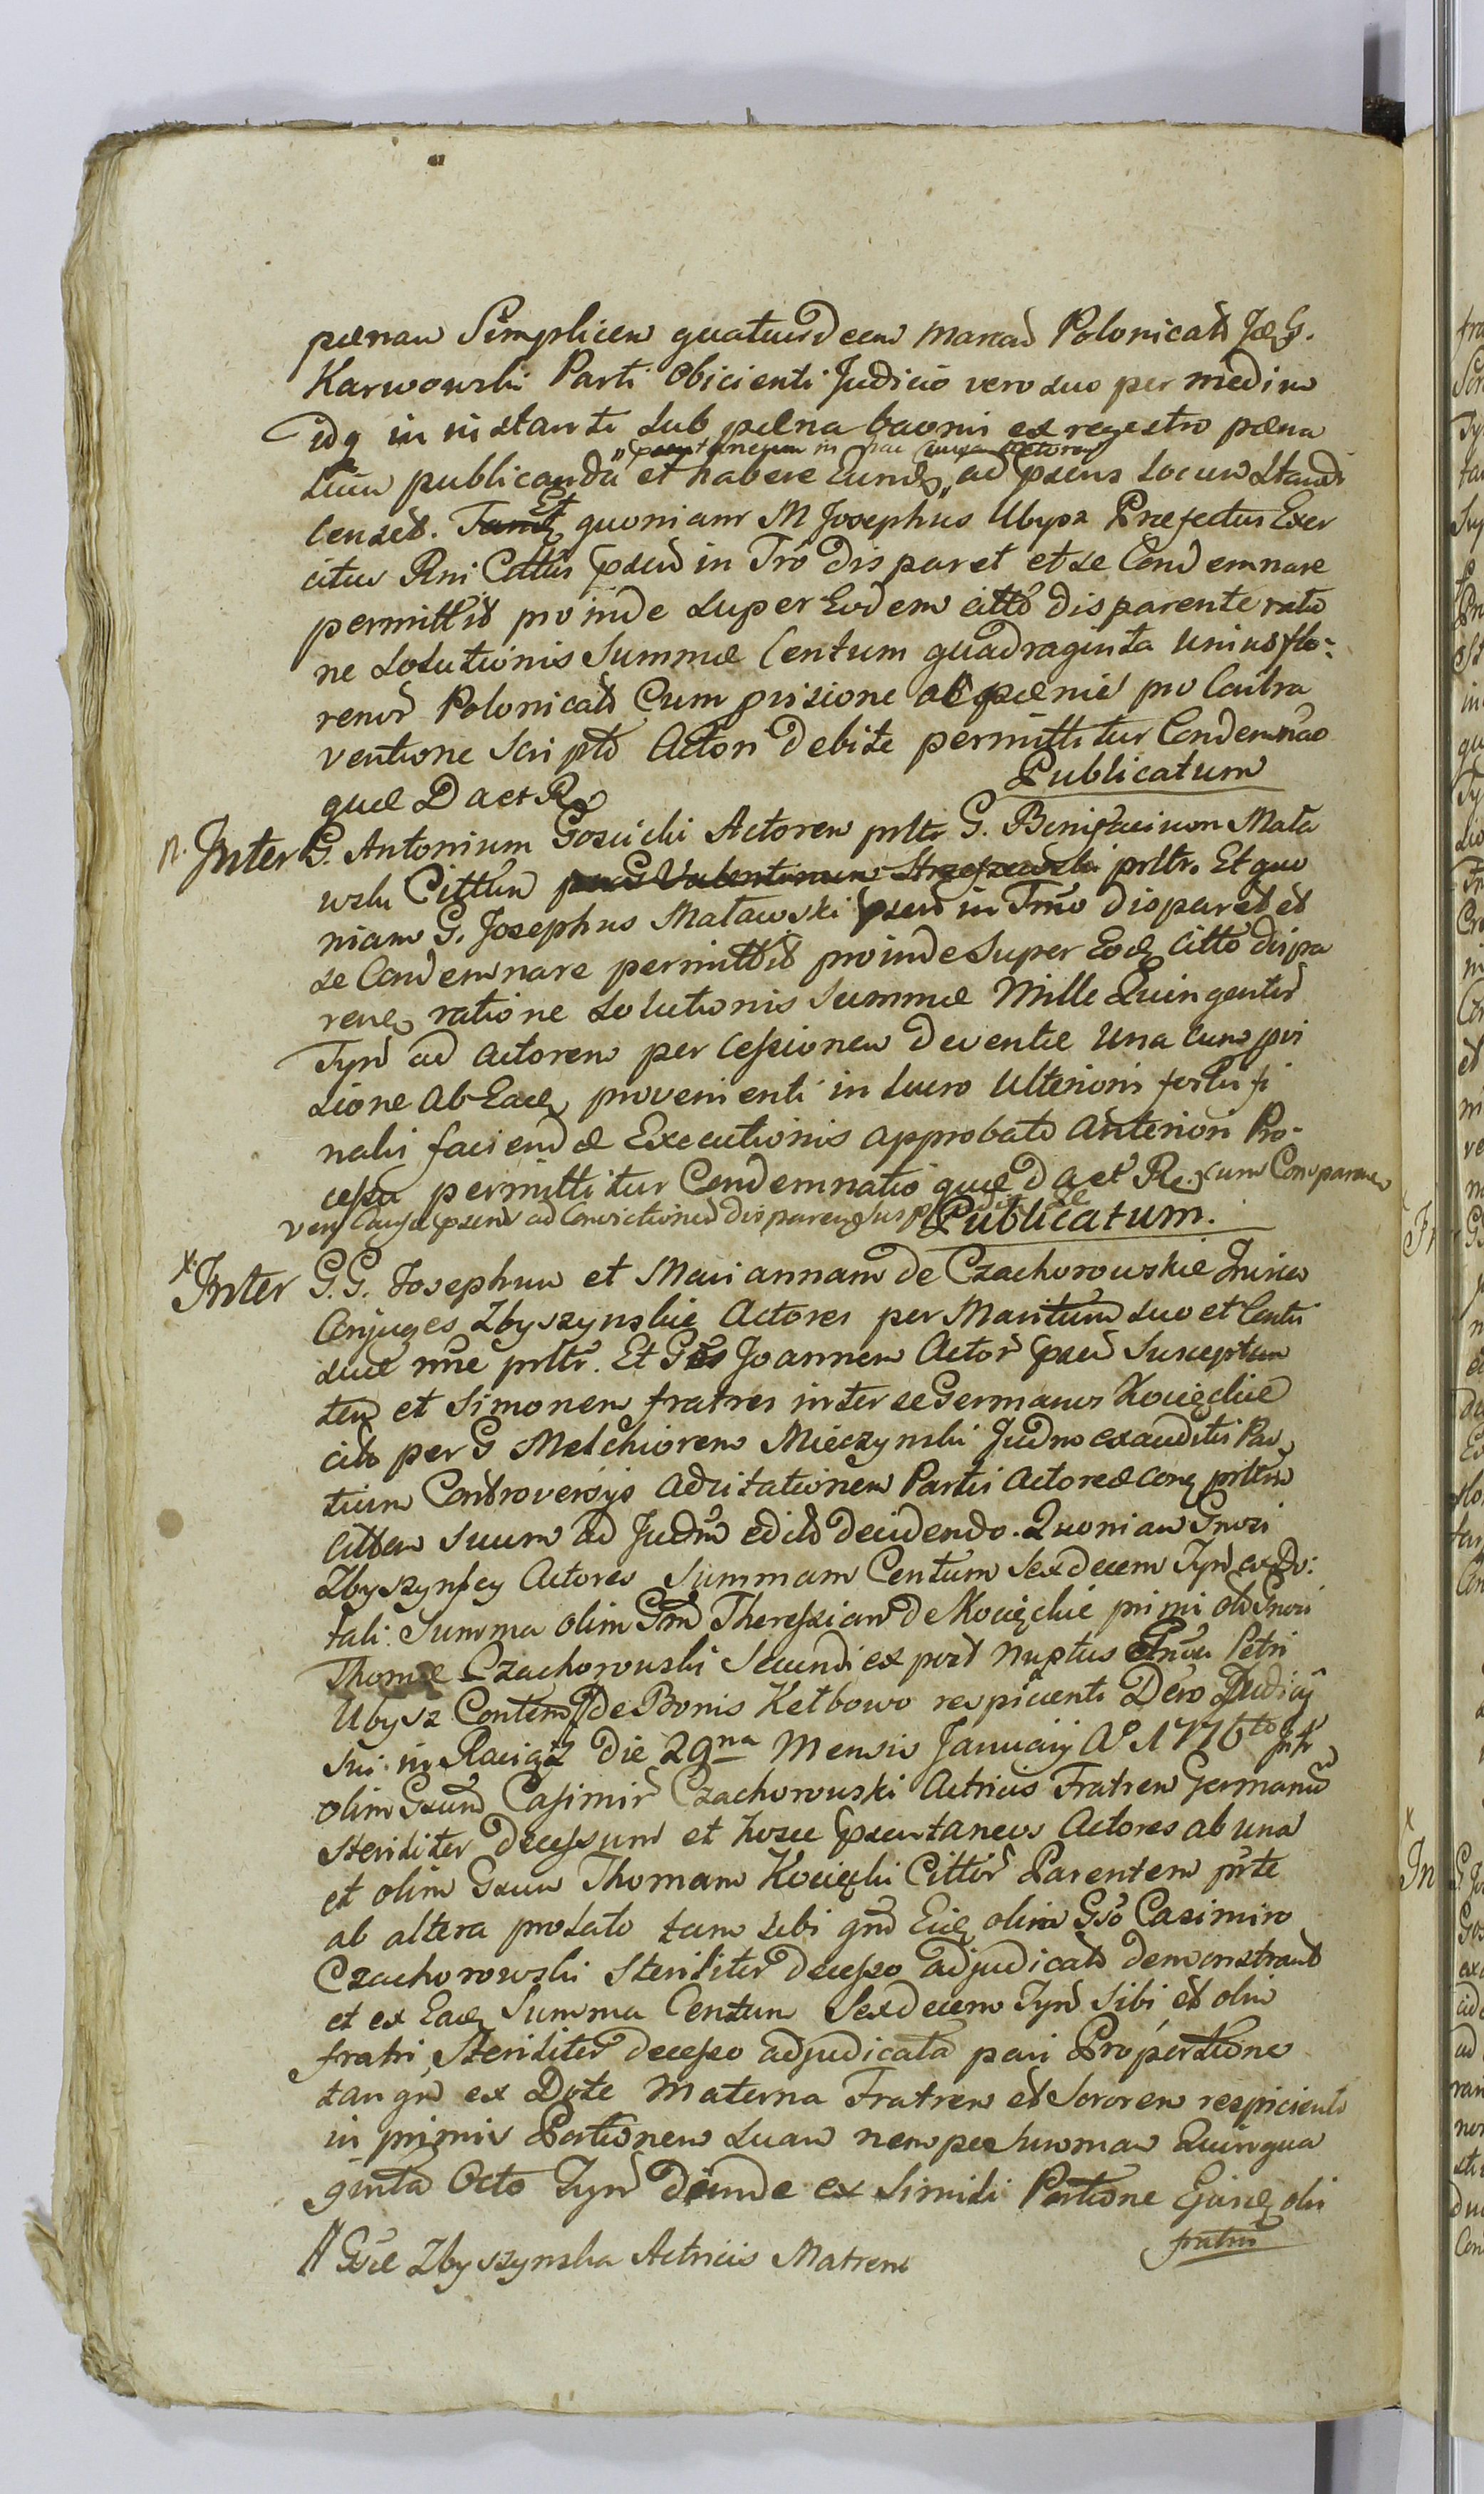 pænam Simplicem quatuordecem Marcas Polonicales
Karwowski Parti Obicienti Judicio vero suo per medium
idq in instanti sub pæna banni ex regestro pæna
lium publicanda et habere eund ad præns locum standi
censet. Et quoniam M Josephus Ubysz Præfectus Exer
citus Rni Cittus præns in Tro disparet et se Condemnare
permittit proinde super Eodem citto disparente ratio
ne Solutionis Summæ Centum quadraginta unius flo-
renor Polonical Cum provisione ac pænis pro Contra
ventione scripto Actori debite permittitur Condemnao
quæ D act R
Publicatum
n. Inter G. Antonium Gosicki Actorem prltr G. Bonifacium Mała
wski Cittum per G Valentinum prltr. Et quo
niam G. Josephus Maławski præns in Trno disparet et
se Condemnare permittit proinde super Eod Citto dispa
rene ratione Solutionis Summæ Mille Quingentor
Tynf ad actorem per Cessionem deventæ una cum provi
sione ab Ead provenienti in lucro ulterioris fortis fi
nalis faciendæ Executionis approbato anteriori Pro-
cessu permittitur Condemnatio quæ D act R. cum Comparuer
ven Causæ præns ad Convictiones disparen
Publicatum.
x. Inter G.G. Josephum et Mariannam de Czachorowskie
Conjuges Zbyszynskie Actores per Maritum suo et Contis
suæ nne prltr. Et Joannem Actor præns Suscepturn
tem et Simonem fratres inter se Germanos Kocięckie
cito per G Melchiorem Mieczynski Judm exauditis Par
tium Controversys adcitationem Partis Actoreæ con prltm
cittam suum ad Judm edito decidendo. Quoniam Gnosi
Zbyszynscy Actores Summam Centum Sexdecem Tynf ex Do:
tali Summa olim Theressiam de Kocięckie primi olim
Thomæ Czachorowski Secundi ex post nuptus Petri
Ubysz Conten # de Bonis Ketbowo respicienti Deto Judicy
sui in Raciąż die 29na Mensis January Ao 1776to
olim Casimir Czachorowski Actricis Fratrem Germanu
steriliter decessum et hosce præntaneos Actores ab una
et olim Thomam Kocięcki Cittor Parentem prte
ab altera prolato tam sibi olim Casimiro
Czachorowski steriliter decesso adjudicato demonstrant
et ex Ead Summa Centum Sexdecem Tynf sibi et olim
fratri steriliter decesso adjudicata pari Proportione
tanqm ex Dote Materna Fratrem et Sororem respicienti
in primis Portionem suam nempe Summam Quinqua
ginta Octo Tynf deinde ex simili Portione Ejusd oli
fratris
# Zbyszynska Actricis Matrem